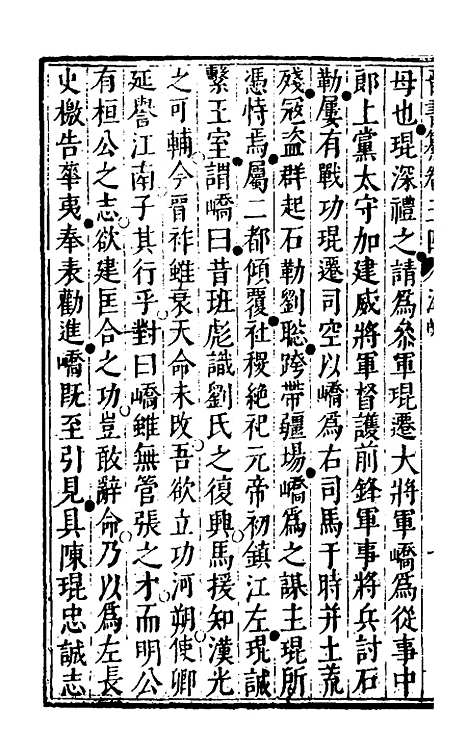 母也琨深禮之請爲叅軍琨遷大將軍嶠爲從事中
郎上黨太守加建威將軍督護前鋒軍事將兵討石
勒屢有戰功琨遷司空以嶠爲右司馬于時并土荒
殘寇盜群起石勒劉聦跨帶疆場嶠爲之謀主琨所
憑恃焉屬二都傾覆社稷絶祀元帝初鎮江左琨誠
繫王室謂嶠曰昔班彪識劉氏之復興馬援知漢光
之可輔今晉祚雖衰天命未改吾欲立功河朔使卿
延譽江南子其行乎對曰嶠雖無管張之才而明公
有桓公之志欲建匡合之功豈敢辭命乃以爲左長
史檄告華夷奉表勸進嶠既至引見具陳琨忠誠志